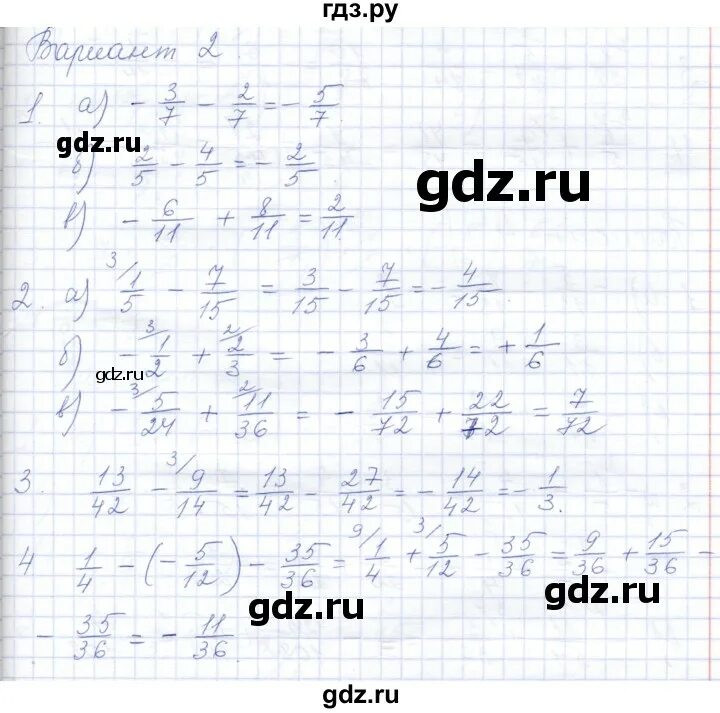 гдз.ру
Вариант 2.
1. а) - 3/7 - 2/7 = - 5/7.
gdz.ru
б) 2/5 - 4/5 = - 2/5.
gdz.ru
в) - 6/11 + 8/11 = 2/11.
2. а) 3/ 1/5 - 7/15 = 3/15 - 7/15 = - 4/15.
б) - 3/ 1/2 + 2/ 2/3 = - 3/6 + 4/6 = + 1/6
gdz.ru
в) - 3/ 5/24 + 2/ 11/36 = - 15/72 + 22/72 = 7/72
3. 13/42 - 3/ 9/14 = 13/42 - 27/42 = - 14/42 = - 1/3.
4 1/4 - (- 5/12) - 35/36 = 9/ 1/4 + 3/ 5/12 - 35/36 = 9/36 + 15/36 -
gdz.ru
gdz.ru
- 35/36 = - 11/36.
gdz.ru